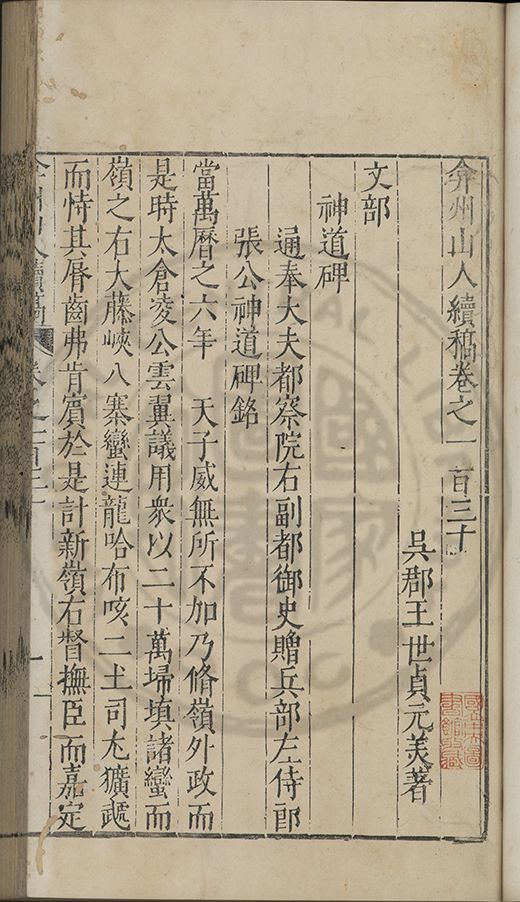 弇州山人續稿卷之一百三十
吳郡王世貞元美著
文部
神道碑
通奉大夫都察院右副都御史贈兵部左侍郎
張公神道碑銘
當萬曆之六年　天子威無所不加乃脩嶺外政而
是時太倉凌公雲翼議用衆以二十萬埽填諸蠻而
嶺之右大藤峽八寨蠻連龍哈布咳二土司尤獷
而恃其脣齒弗肯賓於是計新嶺右督撫臣而嘉定